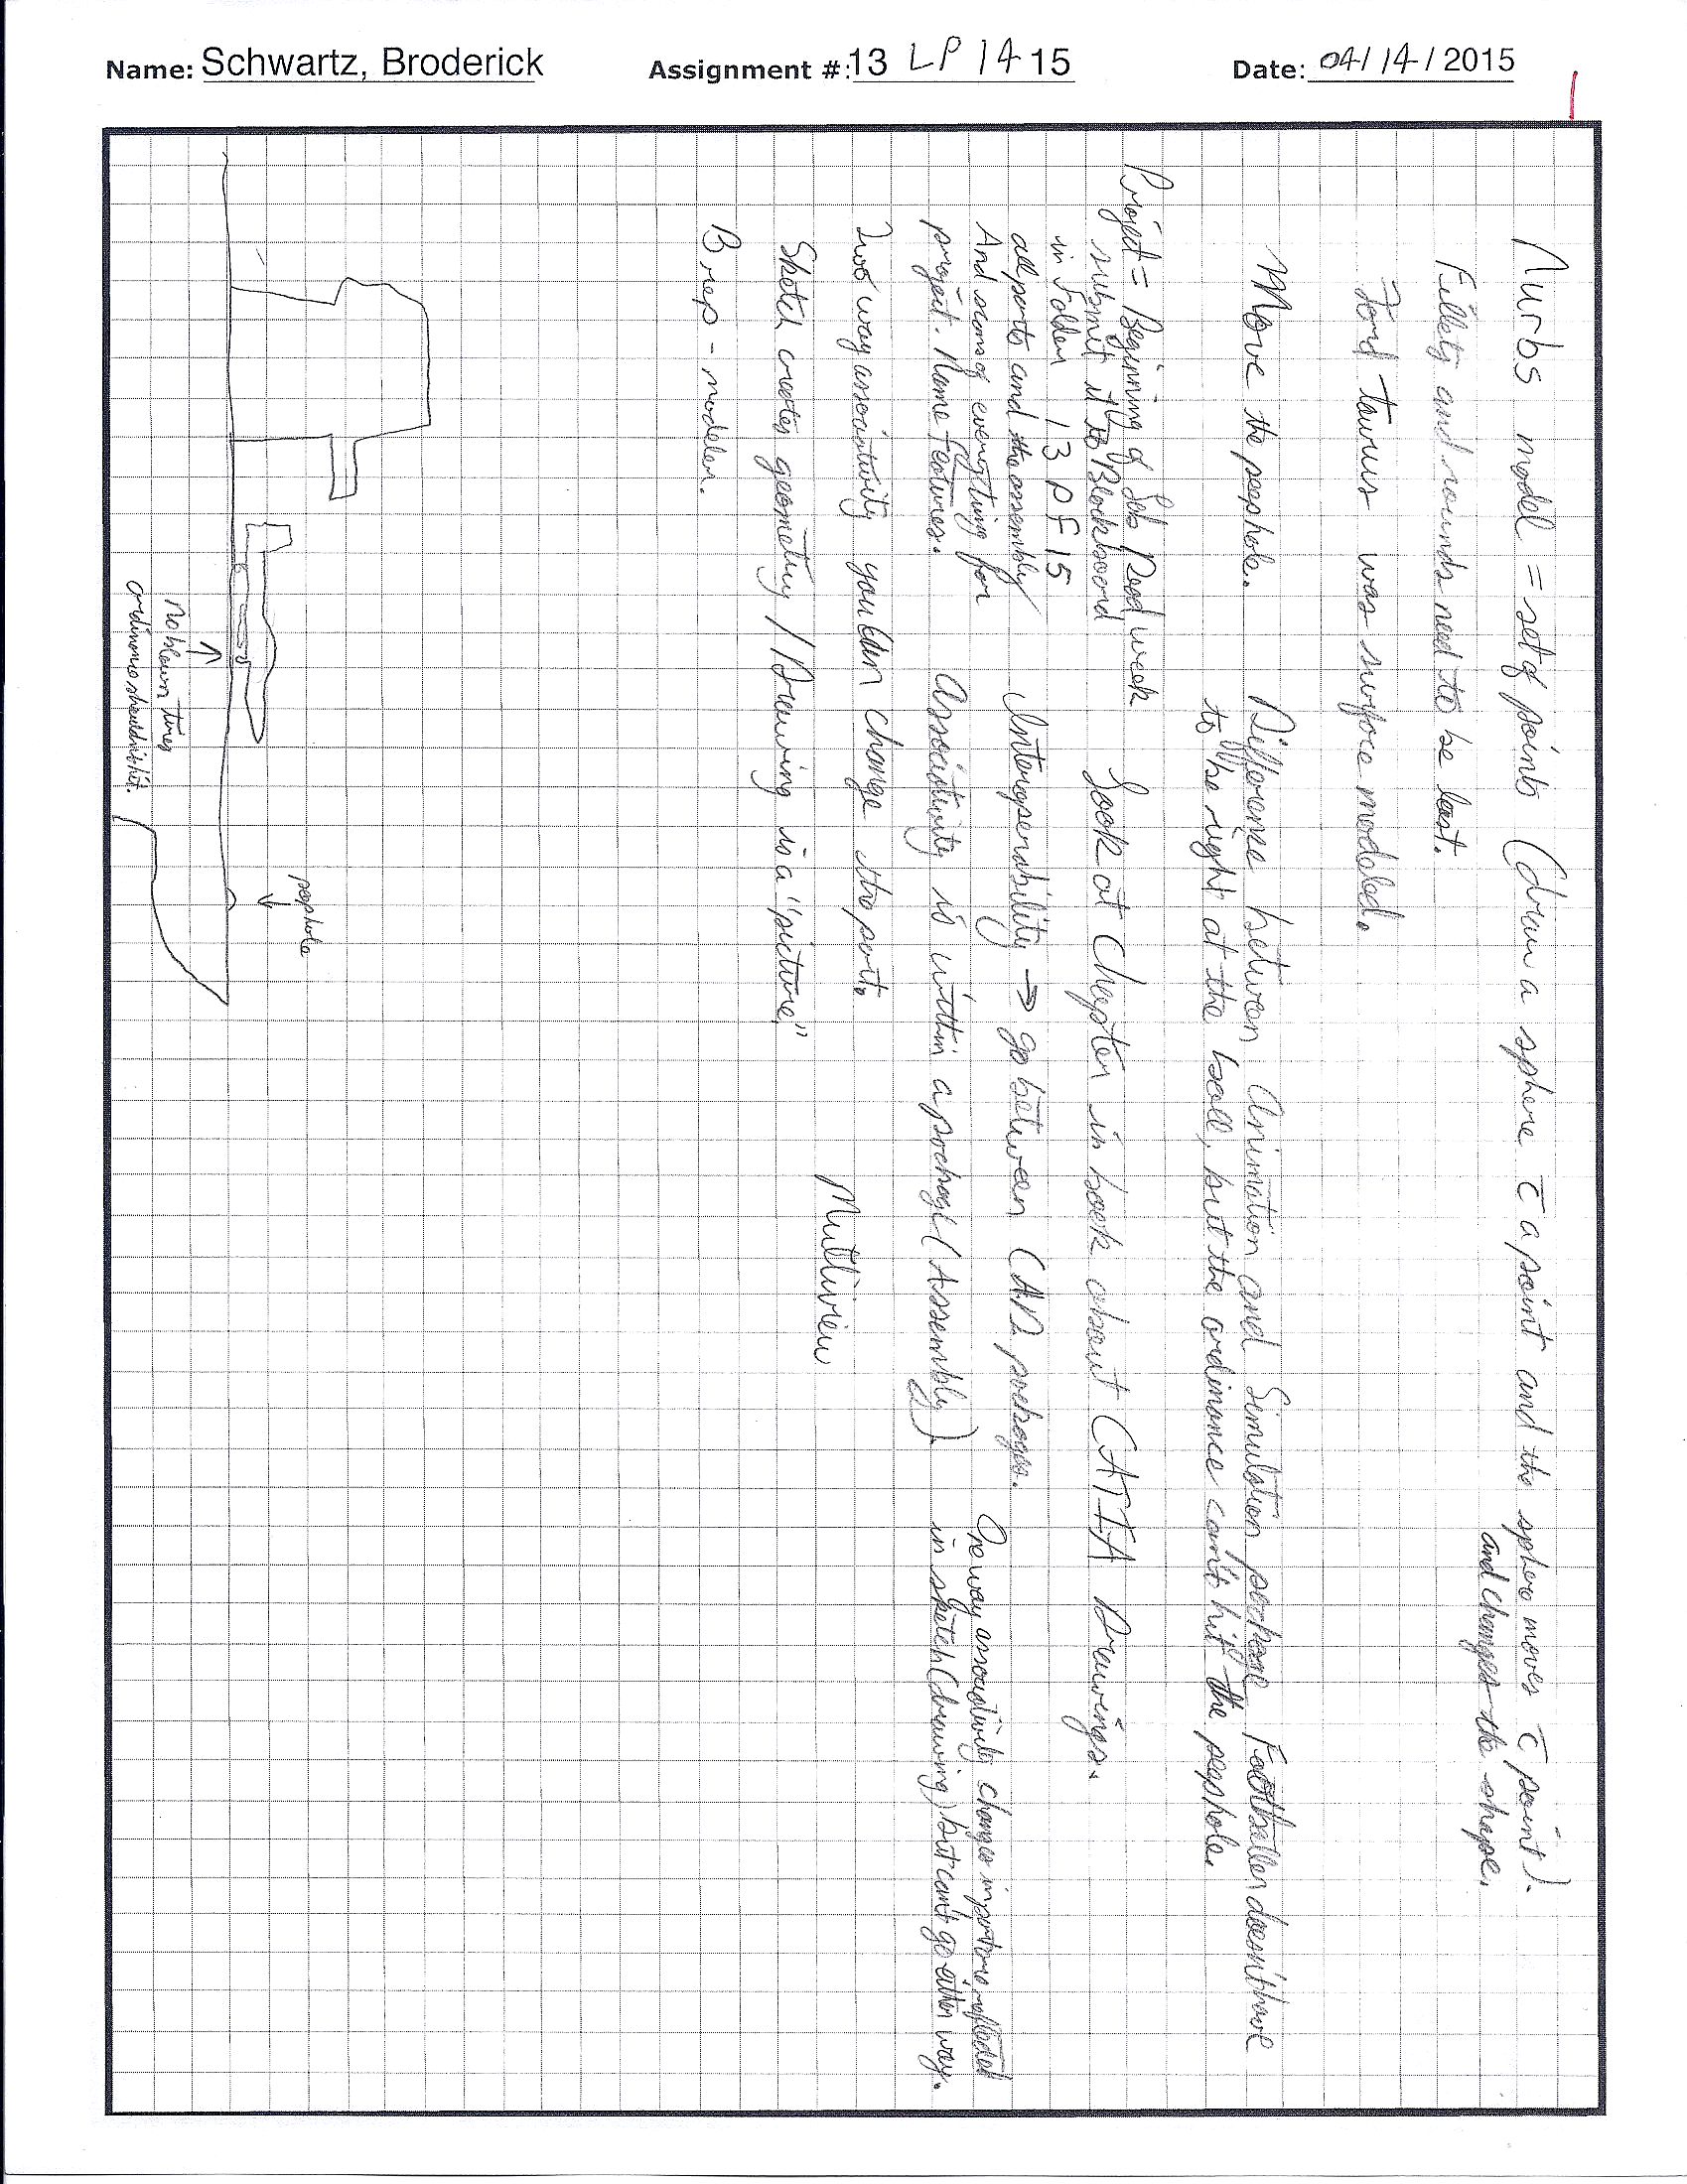 Name: Schwartz, Broderick Assignment #: 13 LP 14 15 Date: 04/14/2015
Nurbs model = set of points (draw a sphere c̄ a point and the sphere moves c̄ point).
and changes the shape.
Fillets and rounds need to be last.
Ford Taurus was surface modeled.
Move the peephole.
Difference between Animation and Simulation package Footballer doesn't have
to be right at the ball, but the ordinance can't hit the peephole.
Project = Beginning of Lab Dead week
submit it to Blackboard
in folder 13 PF 15
all parts and the assembly
And scans of everything for
project. Name features.
Look at Chapter in book about CATIA Drawings.
Interoperability → go between CAD packages.
Associativity is within a package (Assembly).
One way associativity changes in part are reflected
in sketch (drawing) but can't go either way.
Two way associativity you can change the part.
Multiview
Sketch creates geometry / Drawing is a "picture"
Brep - modeler.
peephole
No blown tires
ordinance shouldn't hit.